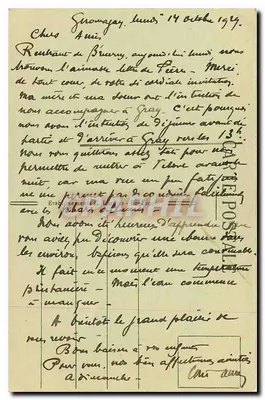 Giromagny, lundi 14 octobre 1929.
Chers Amis,
Rentrant de Beurcy, aujourd'hui lundi nous
trouvons l'aimable lettre de Pierre - Merci
de tout cœur, de votre si cordiale invitation.
Ma mère et ma sœur ont l'intention de
nous accompagner à Gray. C'est pourquoi
nous avons l'intention de déjeuner avant de
partir et d'arriver à Gray vers les 13h
nous vous quitterons assez tôt pour nous
permettre de rentrer à avant la
nuit, car ma vue un peu
ne me permet pas de conduire facilement
avec les phares
Nous avons été heureux d'apprendre que
vous aviez pu découvrir une bonne dans
les environs, espérons qu'elle sera convenable.
Il fait en ce moment une température
printanière - Mais l'eau commence
à manquer -
A bientôt le grand plaisir de
vous revoir
Bons baisers à vos enfants
Pour vous, nos bien affectueuses amitiés
à dimanche -
CARTE POSTALE
DELCAMPE